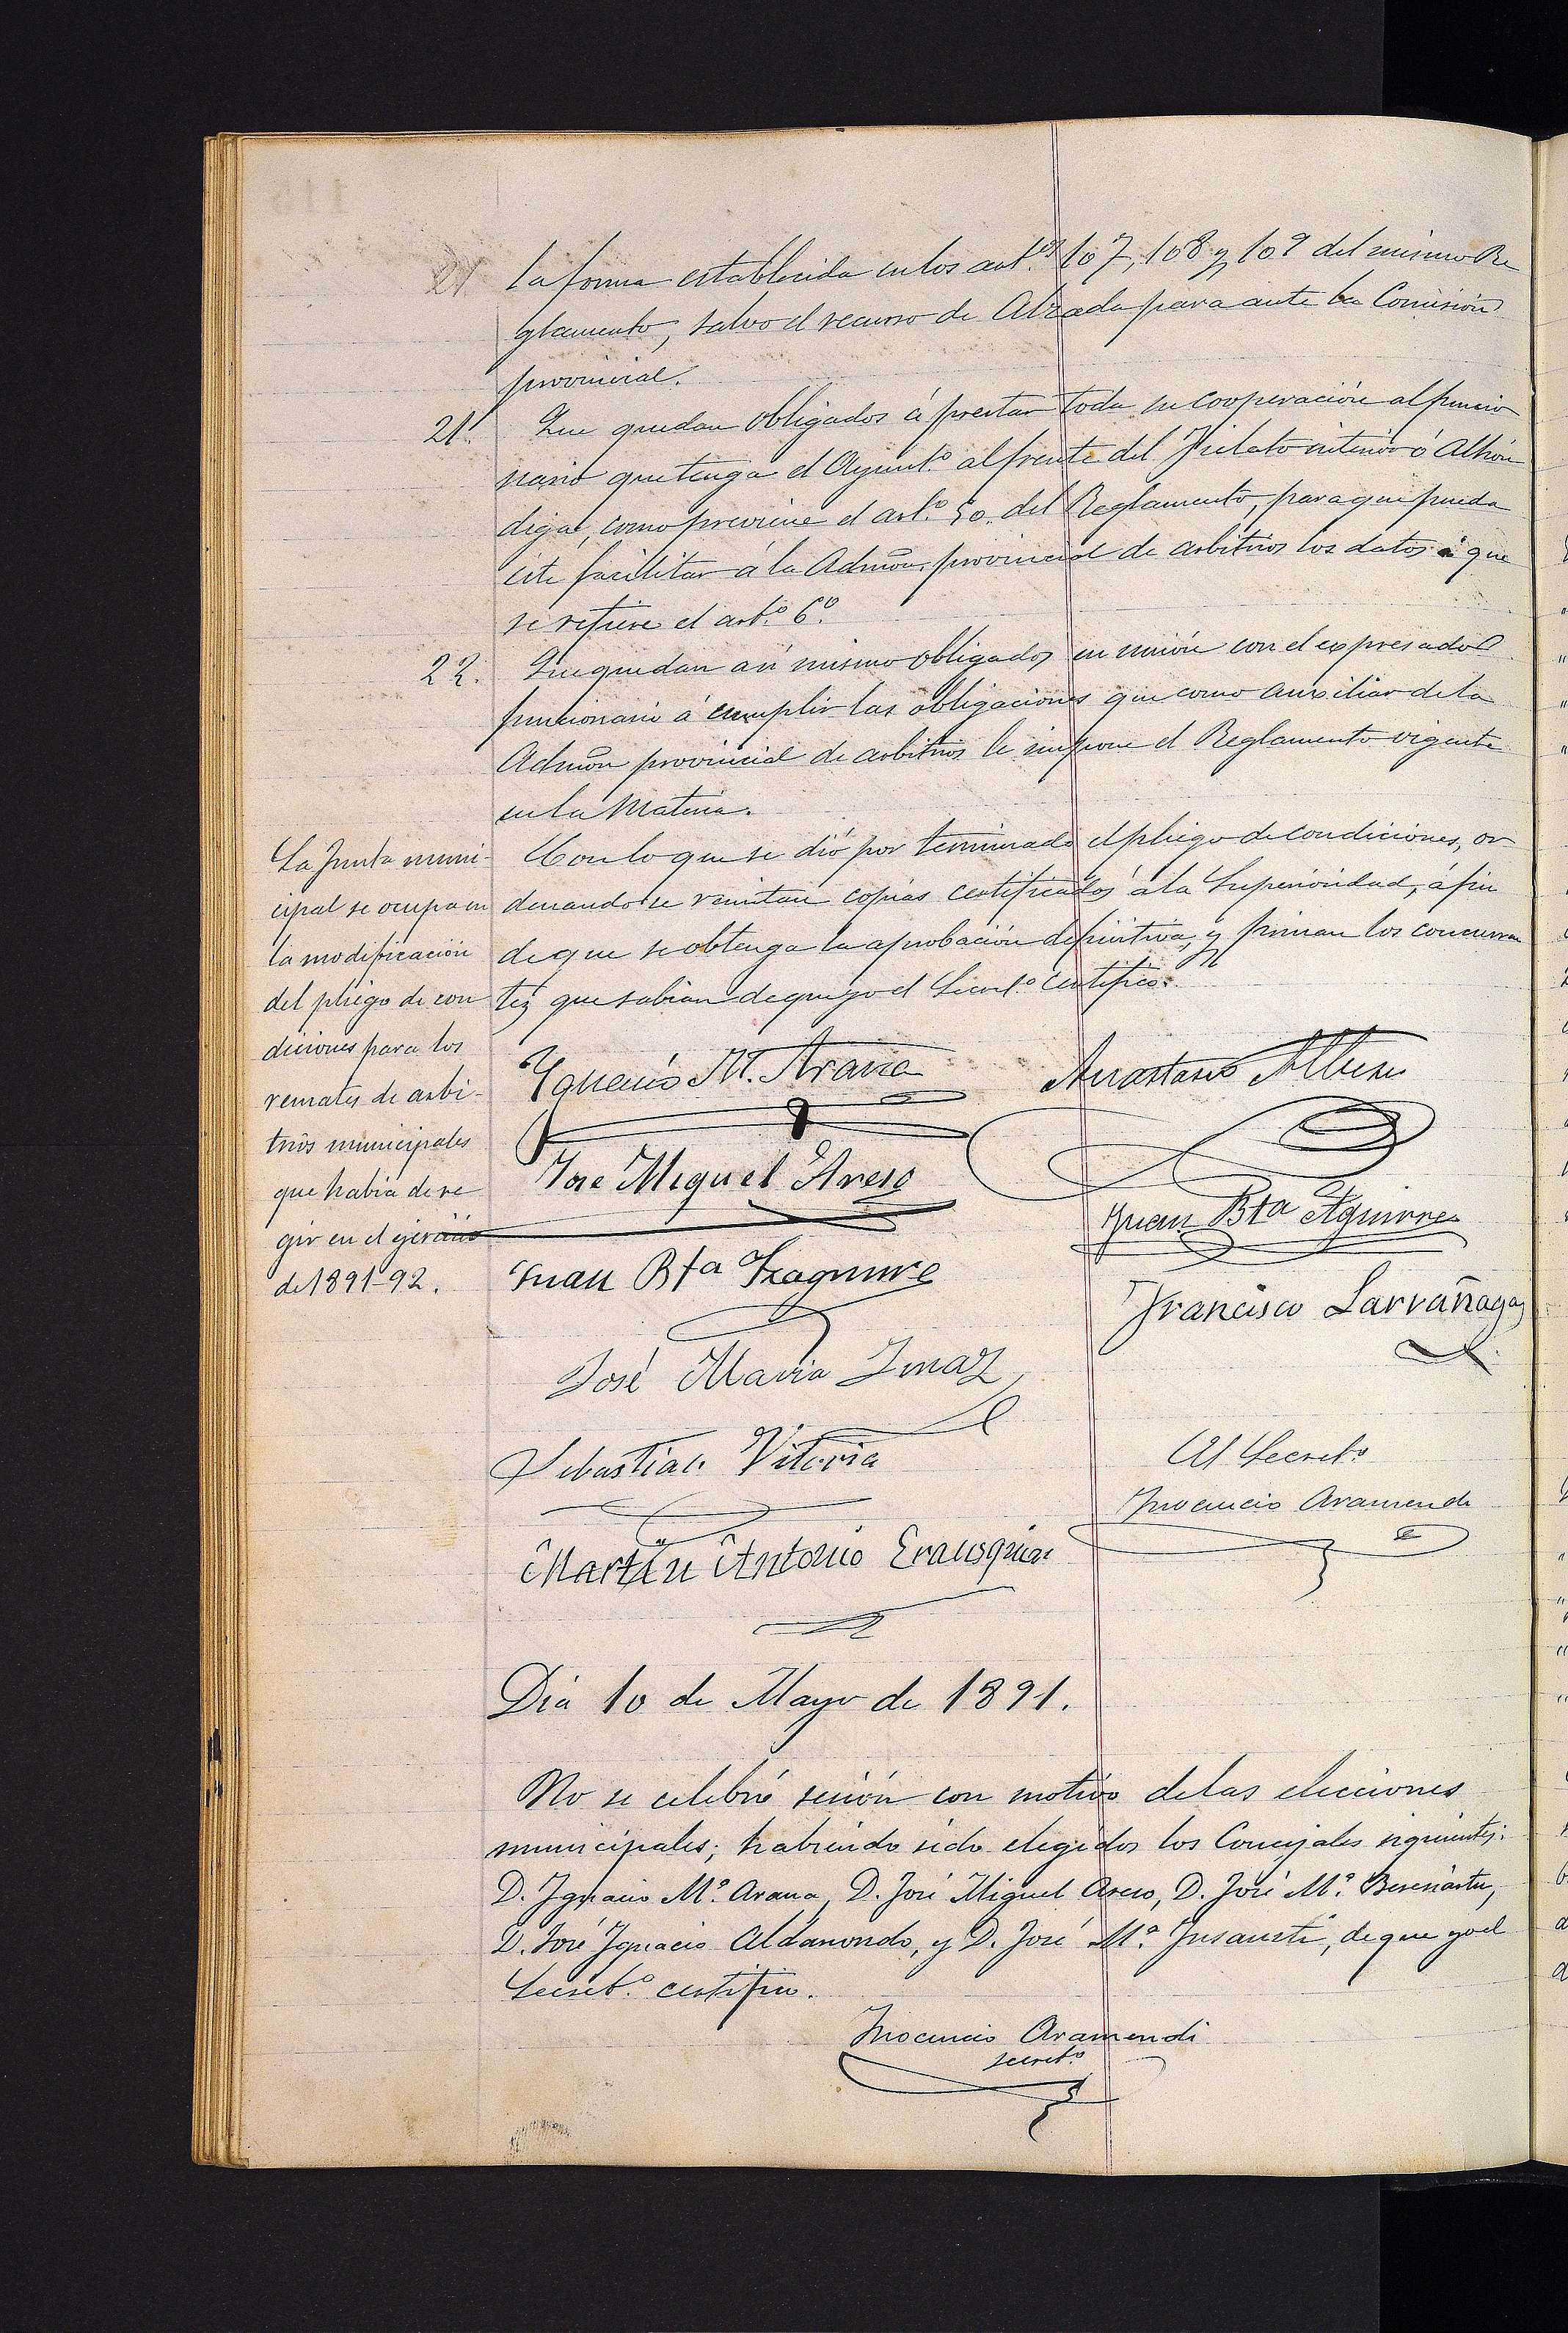 la forma establecida en los art.os 107, 108 y 109 del mismo Re
glamento, salvo el recurso de Alzada para ante la Comisión
provincial.
21. Que quedan obligados á prestar toda su cooperación al funcio
nario que tenga el Ayunt.º al frente del Fielato interior ó Alhón
diga, como previene el art.º 50. del Reglamento, para que pueda
éste facilitar á la Admón. provincial de arbitrios los datos á que
se refiere el art.º 6º.
22. Que quedan así mismo obligados en unión con el expresado
funcionario á cumplir las obligaciones que como auxiliar de la
Admón provincial de arbitrios le impone el Reglamento vigente
en la Materia.
Con lo que se dió por terminado el pliego de condiciones, or
denando se remitan copias certificadas á la Superioridad, á fin
de que se obtenga la aprobación definitiva, y firman los concurren
tes que sabían de que yo el Secret.º Certifico.
La Junta muni-
cipal se ocupa en
la modificación
del pliego de con
diciones para los
remates de arbi-
trios municipales
que había de re
gir en el ejercicio
de 1891-92.
Ygnacio M. Arana
Anastasio
Jose Miguel Areso
Juan Bta Aguirre
Juan Bta Izaguirre
Francisco Larrañaga
José Maria Imaz
Sebastian Vitoria
El Secret.º
Inocencio Aramendi
Martin Antonio Erausquin
Dia 10 de Mayo de 1891.
No se celebró sesión con motivo de las elecciones
municipales; habiendo sido elegidos los Concejales siguientes:
D. Ignacio Mª. Arana, D. José Miguel Areso, D. José Mª. Bereciartu,
D. José Ignacio Aldanondo, y D. José Mª. Insausti, de que yo el
Secret.º certifico.
Inocencio Aramendi
secret.º